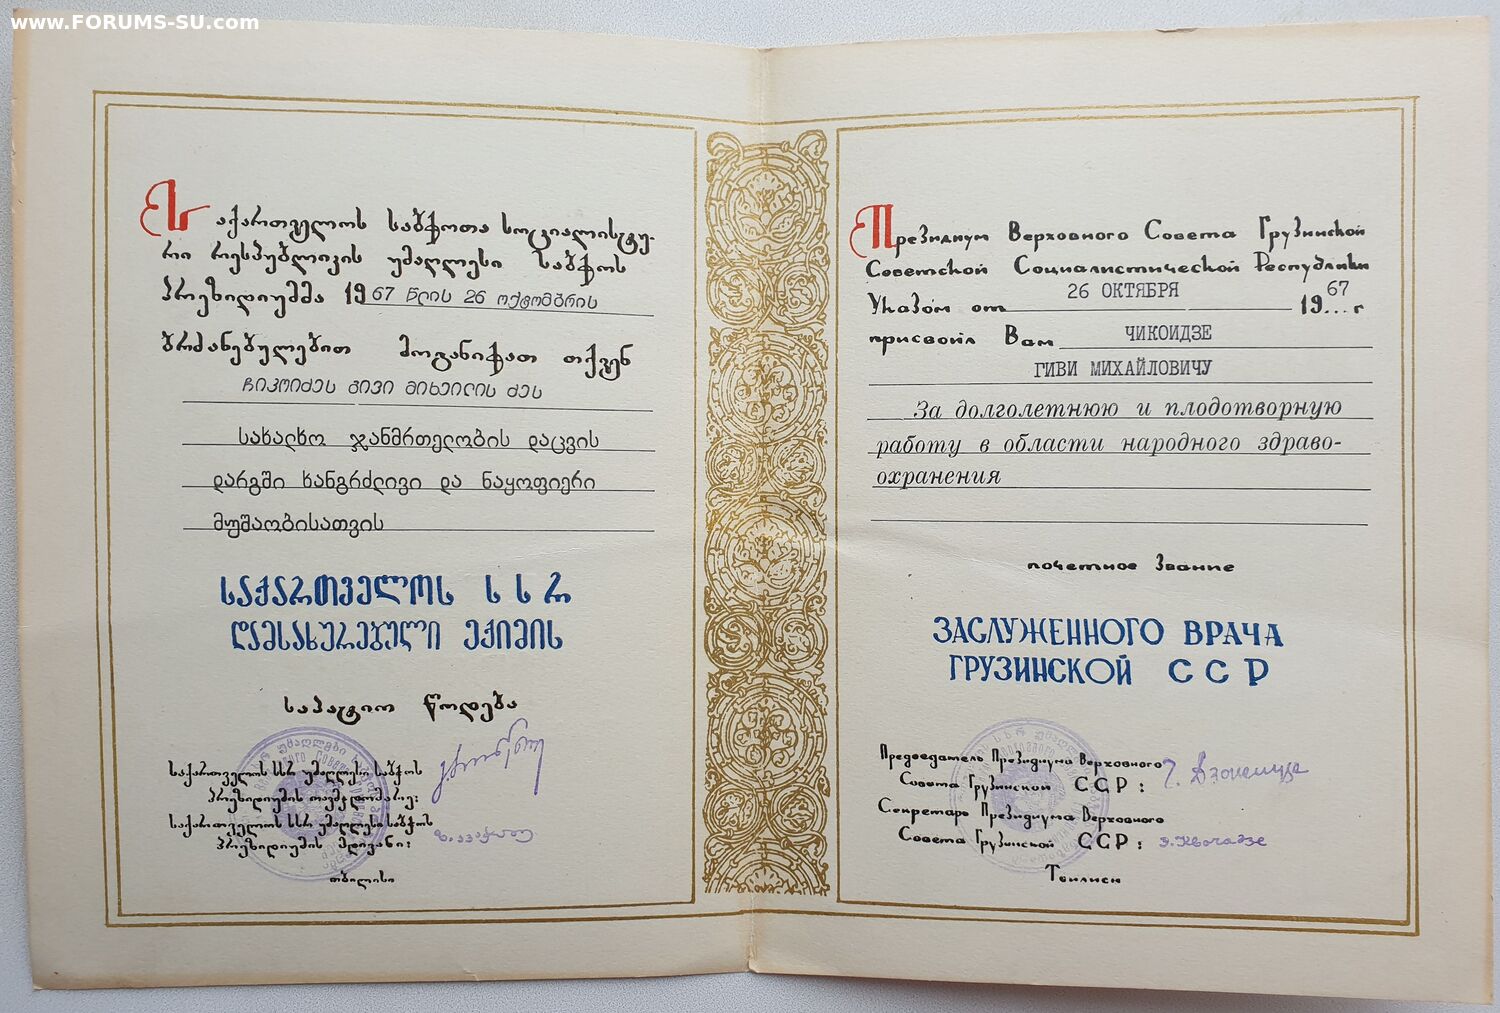 www.FORUMS-SU.com
საქართველოს საბჭოთა სოციალისტუ-
რი რესპუბლიკის უმაღლესი საბჭოს
პრეზიდიუმმა 1967 წლის 26 ოქტომბრის
ბრძანებულებით მოგანიჭათ თქვენ
ჩიკოიძეს გივი მიხეილის ძეს
სახალხო ჯანმრთელობის დაცვის
დარგში ხანგრძლივი და ნაყოფიერი
მუშაობისათვის
საქართველოს სსრ
დამსახურებული ექიმის
საპატიო წოდება
საქართველოს სსრ უმაღლესი საბჭოს
პრეზიდიუმის თავმჯდომარე:
საქართველოს სსრ უმაღლესი საბჭოს
პრეზიდიუმის მდივანი:
თბილისი
Президиум Верховного Совета Грузинской
Советской Социалистической Республики
Указом от 26 ОКТЯБРЯ 1967 г
присвоил Вам ЧИКОИДЗЕ
ГИВИ МИХАЙЛОВИЧУ
За долголетнюю и плодотворную
работу в области народного здраво-
охранения
почетное звание
ЗАСЛУЖЕННОГО ВРАЧА
ГРУЗИНСКОЙ ССР
Председатель Президиума Верховного
Совета Грузинской ССР: Г. Дзоценидзе
Секретарь Президиума Верховного
Совета Грузинской ССР: З. Квачадзе
Тбилиси